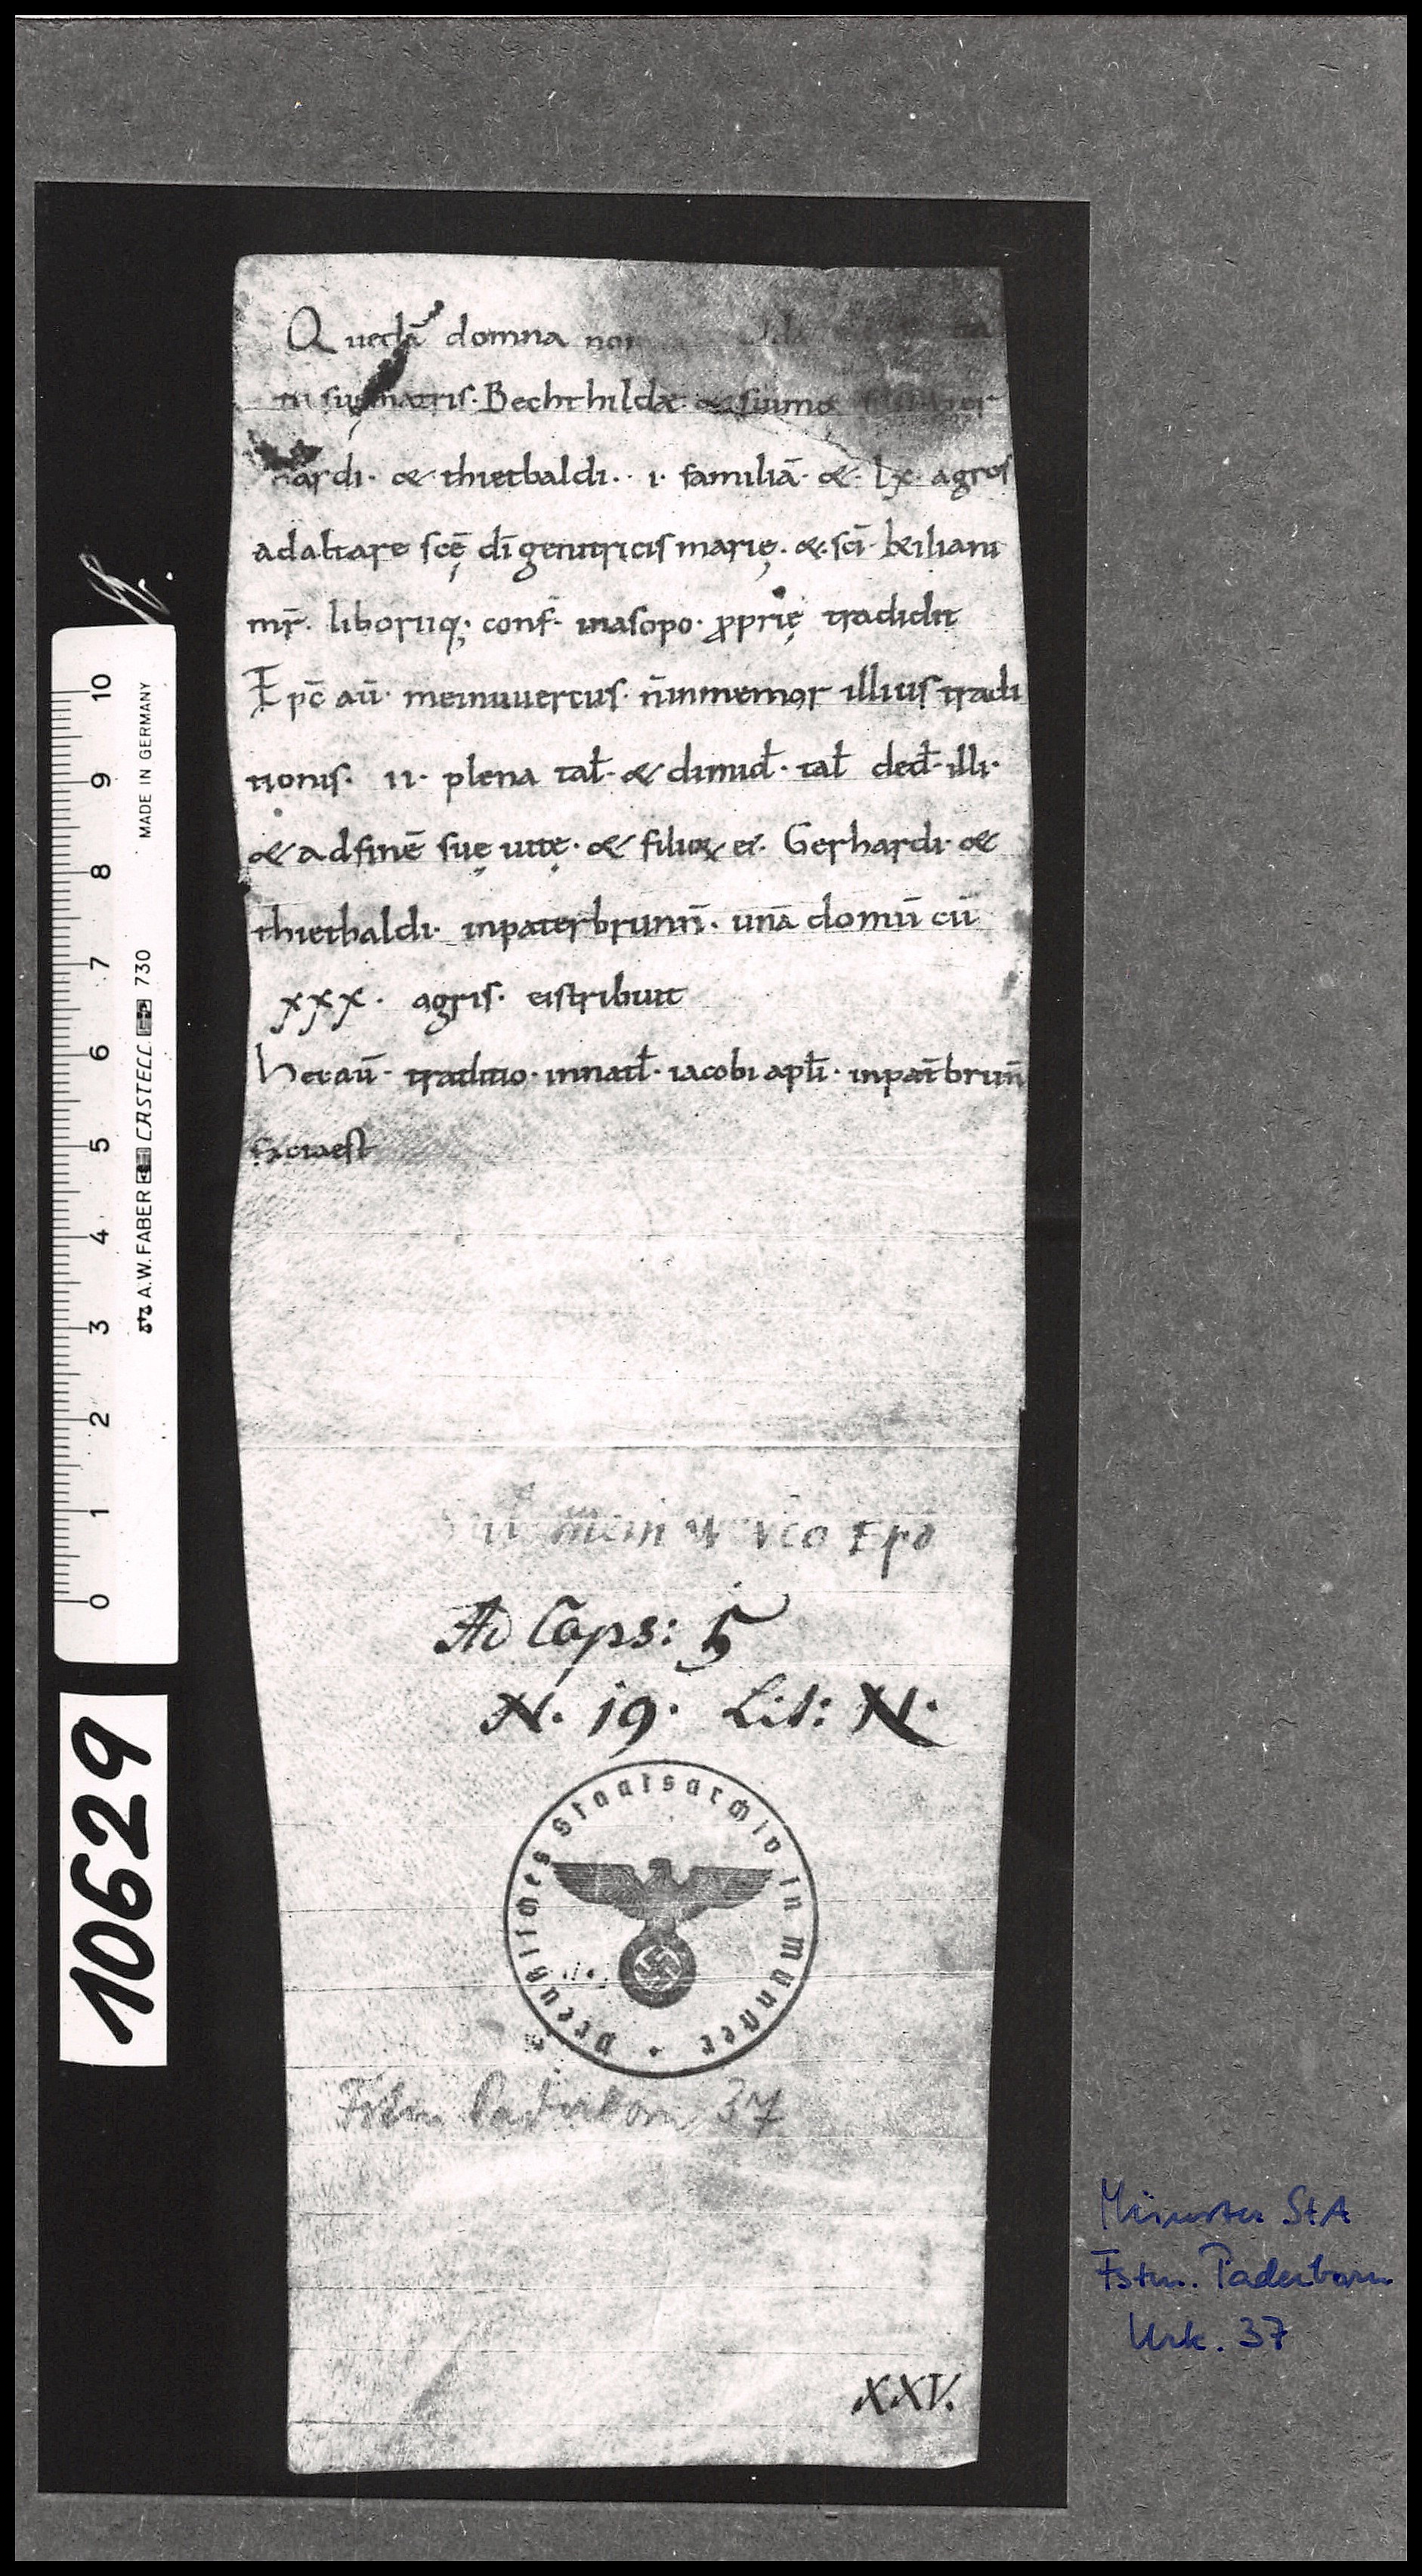 Quedā domna
suę matris· Bechthildæ· & suimꝫ
ardi· & thietbaldi·· ı· familiā· & lx· agros
ad altare scę̄ dī genitricis marię· &· scī· kiliani
mr̄· liboriiq;· conf̄· in asopo· ꝓprię tradidit
Epc̄ aū· meinuuercus· n̄ inmemor illius tradi
tionis· ıı· plena tal̄· & dimid̄· tal̄ ded̄· illi·
& ad finē suę uitę· & filioꝝ ei· Gerhardi· &
thietbaldi· in paterbrunn̄· unā domū cū
xxx· agris· eis tribuit
Hec aū· traditio· in natl̄· iacobi apl̄i· in pat̄brun̄
facta est
meinwerco Epō
Ad Caps: 5
N. 19. Lit: N.
Preußisches Staatsarchiv in Münster
Fstm Paderborn 37
XXV.
10 9 8 7 6 5 4 3 2 1 0
A.W.FABER CASTELL 730 MADE IN GERMANY
10629
Münster StA
Fstm. Paderborn
Urk. 37